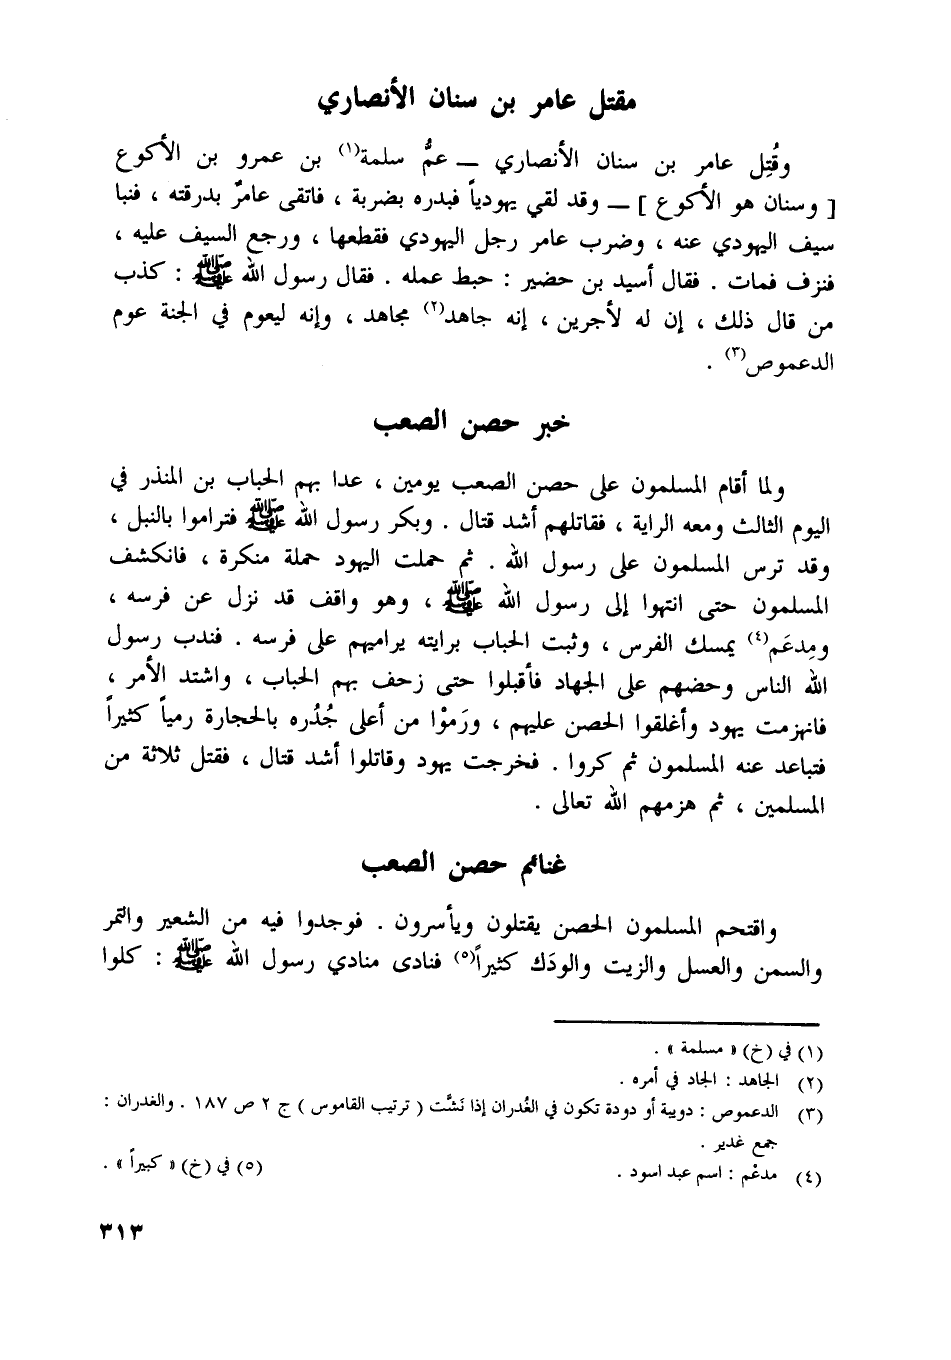 مقتل عامر بن سنان الأنصاري
وقُتِل عامر بن سنان الأنصاري ــ عمُّ سلمة(١) بن عمرو بن الأكوع
[ وسنان هو الأكوع ] ــ وقد لقي يهودياً فبدره بضربة ، فاتقى عامرٌ بدرقته ، فنبا
سيف اليهودي عنه ، وضرب عامر رجل اليهودي فقطعها ، ورجع السيف عليه ،
فنزف فمات . فقال أسيد بن حضير : حبط عمله . فقال رسول الله ﷺ : كذب
من قال ذلك ، إن له لأجرين ، إنه جاهد(٢) مجاهد ، وإنه ليعوم في الجنة عوم
الدعموص(٣) .
خبر حصن الصعب
ولما أقام المسلمون على حصن الصعب يومين ، عدا بهم الحباب بن المنذر في
اليوم الثالث ومعه الراية ، فقاتلهم أشد قتال . وبكر رسول الله ﷺ فتراموا بالنبل ،
وقد ترس المسلمون على رسول الله . ثم حملت اليهود حملة منكرة ، فانكشف
المسلمون حتى انتهوا إلى رسول الله ﷺ ، وهو واقف قد نزل عن فرسه ،
ومِدعَم(٤) يمسك الفرس ، وثبت الحباب برايته يراميهم على فرسه . فندب رسول
الله الناس وحضهم على الجهاد فأقبلوا حتى زحف بهم الحباب ، واشتد الأمر ،
فانهزمت يهود وأغلقوا الحصن عليهم ، ورَموْا من أعلى جُدُره بالحجارة رمياً كثيراً
فتباعد عنه المسلمون ثم كروا . فخرجت يهود وقاتلوا أشد قتال ، فقتل ثلاثة من
المسلمين ، ثم هزمهم الله تعالى .
غنائم حصن الصعب
واقتحم المسلمون الحصن يقتلون ويأسرون . فوجدوا فيه من الشعير والتمر
والسمن والعسل والزيت والودَك كثيراً(٥) فنادى منادي رسول الله ﷺ : كلوا
(١) في (خ) « مسلمة » .
(٢) الجاهد : الجاد في أمره .
(٣) الدعموص : دويبة أو دودة تكون في الغُدران إذا نَشَّت ( ترتيب القاموس ) ج ٢ ص ١٨٧ . والغدران :
جمع غدير .
(٤) مدعْم : اسم عبد اسود .
(٥) في (خ) « كبيراً » .
٣١٣